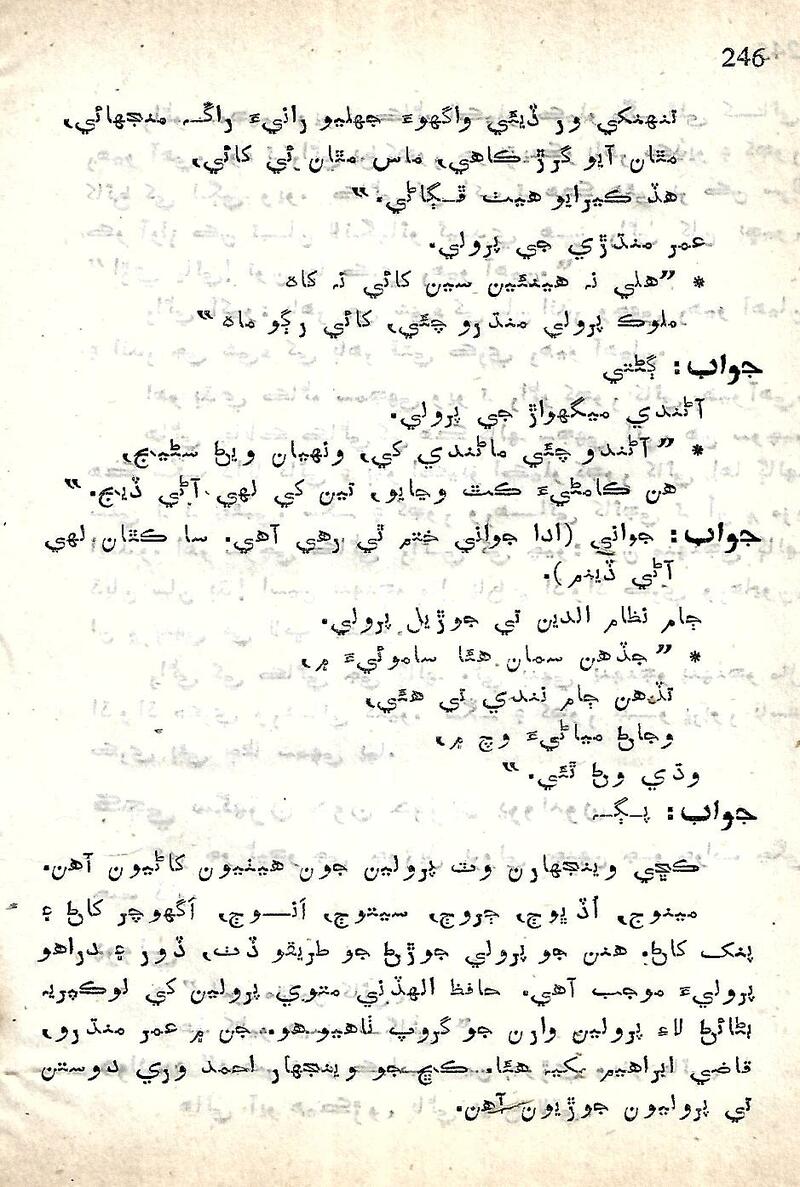 246
تنهنکي ور ڏيئي واگهوءَ جهليو رانيءَ راڱہ منجهائي،
مٿان آيو گرڙ ڪاهي، ماس مٿان ئي کائي،
هڏ ڪيرايو هيٺ ڦـڳاڻي."
عمر منڌڙي جي پرولي.
* "هلي نہ هينئين سين کائي نہ کاہ
ملوڪ پرولي منڌرو چئي، کائي رڳو ماہ"
جواب: ڳڻتي
آڻندي ميگهواڙ جي پرولي.
* "آڻندو چئي ماڻندي کي، ونهيان ويڻ سڻيج،
هن ڪامڻيءَ ڪٿ وڃايو، تين کي لهي آڻي ڏيج."
جواب: جواني (ادا جواني ختم ٿي رهي آهي. سا ڪٿان لهي
آڻي ڏينم).
ڄام نظام الدين تي جوڙيل پرولي.
* "جڏهن سمان هئا ساموئيءَ ۾،
تڏهن ڄام نندي تي هئي،
وڃاڻ مياڻيءَ وچ ۾،
وڌي وڻ ٿئي."
جواب: پـڳـہ
ڪڇي وينجهارن وٽ پرولين جون هيٺيون کاڻيون آهن.
مينوڄ، اُڏ ڀوڄ، ڄروڄ، سيتوڄ، اَنـوڄ، اَگهوچر کاڻ ۽
پنک کاڻ. هنن جو پرولي جوڙڻ جو طريقو ڏٺ، ڏور ۽ دراهو
پروليءَ موجب آهي. حافظ الهڏني متوي پرولين کي لوڪپريہ
بڻائڻ لاءِ پرولين وارن جو گروپ ٺاهيو هو. جن ۾ عمر منڌرو،
قاضي ابراهيم بکيہ هئا. ڪڇ جو وينجهار احمد وري دوستن
تي پروليون جوڙيون آهن.